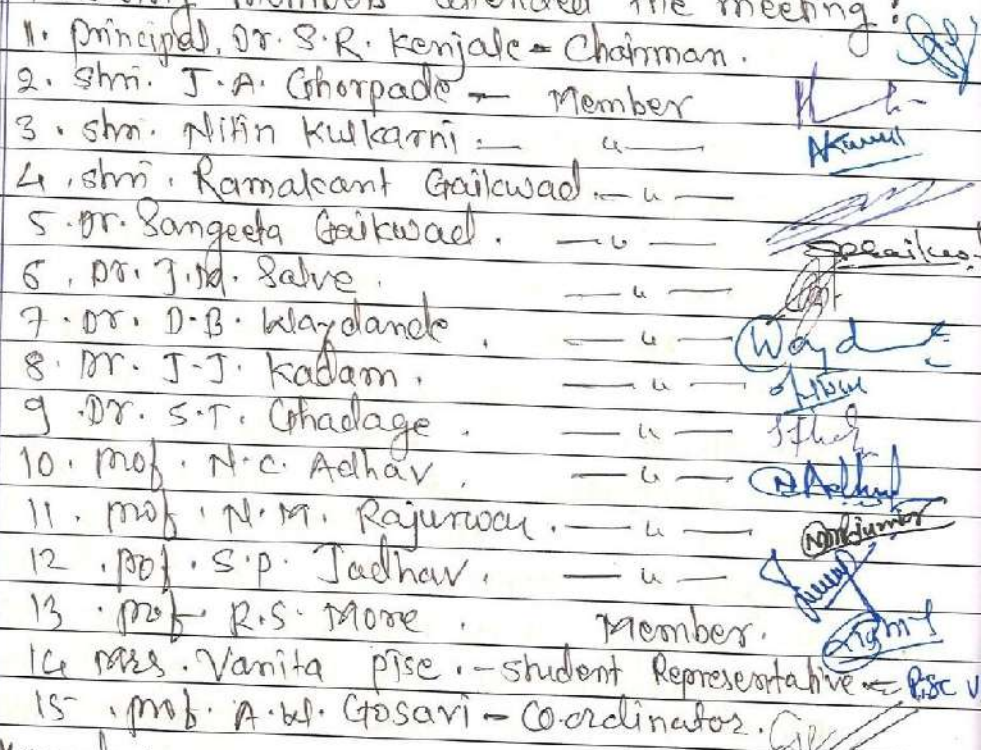 members attended the meeting:
1. Principal, Dr. S.R. Kenjale - Chairman.
2. Shri. J.A. Ghorpade — Member
3. Shri. Nitin Kulkarni — "—
4. Shri. Ramakant Gaikwad. — " —
5. Dr. Sangeeta Gaikwad. — " —
6. Dr. J.M. Salve. — " —
7. Dr. D.B. Waydande. — " —
8. Dr. J.J. Kadam. — " —
9. Dr. S.T. Ghadage. — " —
10. Prof. N.C. Adhav. — " —
11. Prof. N.M. Rajurwar. — " —
12. Prof. S.P. Jadhav. — " —
13. Prof R.S. More Member.
14 Mrs. Vanita Pise. - Student Representative - Pise V
15. Prof. A.W. Gosavi - Co-ordinator.